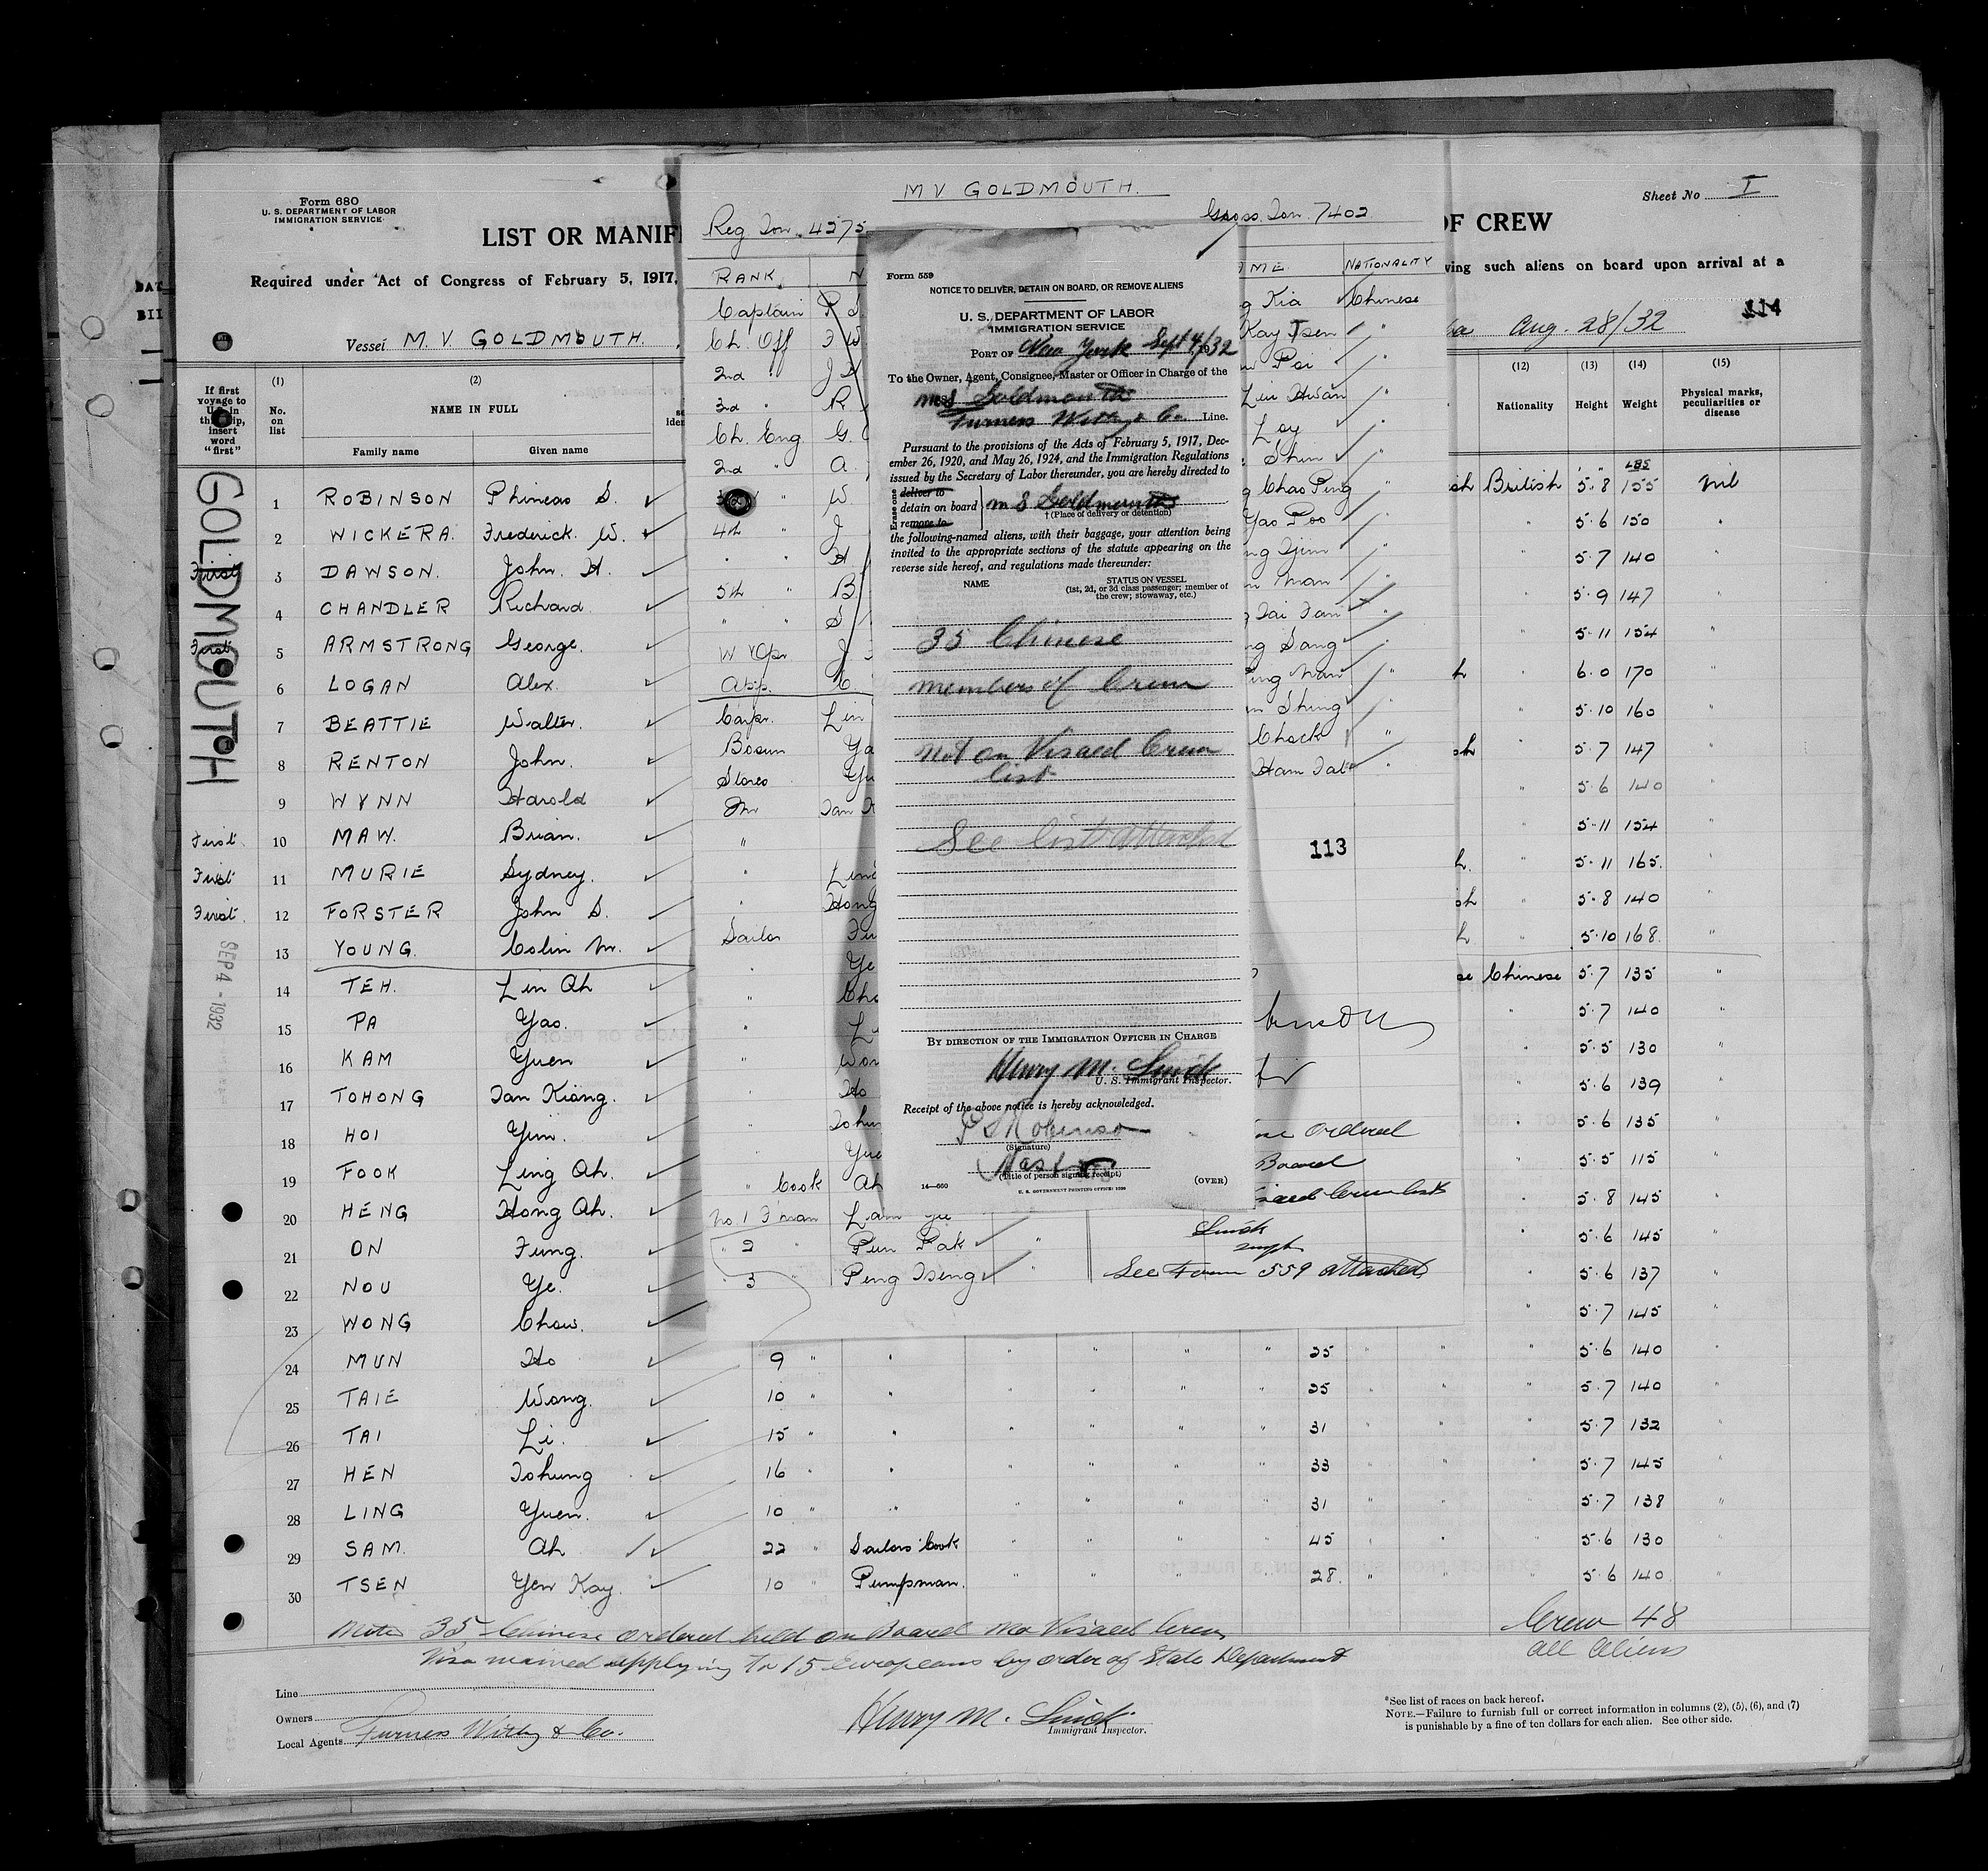 Form 680
U. S. DEPARTMENT OF LABOR
IMMIGRATION SERVICE
Sheet No. I
LIST OR MANIF
OF CREW
Required under Act of Congress of February 5, 1917,
ving such aliens on board upon arrival at a
Vessel M. V. GOLDMOUTH.
Aug. 28/32
114
If first voyage to U.S. in this ship, insert word "first"
(1) No. on list
(2) NAME IN FULL
Family name Given name
(12) Nationality
(13) Height
(14) Weight
(15) Physical marks, peculiarities or disease
GOLDMOUTH
SEP 4 - 1932
1 ROBINSON Phineas S. British 5.8 155 nil
2 WICKERA. Frederick. W. " 5.6 150 "
First 3 DAWSON. John. H. " 5.7 140 "
4 CHANDLER Richard. " 5.9 147 "
First 5 ARMSTRONG George. " 5.11 154 "
6 LOGAN Alex. " 6.0 170 "
7 BEATTIE Walter. " 5.10 160 "
8 RENTON John. " 5.7 147 "
9 WYNN Harold " 5.6 140 "
First 10 MAW. Brian. " 5.11 154 "
First 11 MURIE Sydney. " 5.11 165. "
First 12 FORSTER John S. " 5.8 140 "
13 YOUNG. Colin M. " 5.10 168. "
14 TEH. Lin Ah Chinese 5.7 135 "
15 PA Yao. " 5.7 140 "
16 KAM Yuen " 5.5 130 "
17 TOHONG Tan Kiang. " 5.6 139 "
18 HOI Yim. " 5.6 135 "
19 FOOK Ling Ah. " 5.5 115 "
20 HENG Hong Ah. " 5.8 145 "
21 ON Fung. " 5.6 145 "
22 NOU Ye. " 5.6 137 "
23 WONG Chow. " 5.7 145 "
24 MUN Ho 9 " " " " " " 25 " " " 5.6 140 "
25 TAIE Wong. 10 " " " " " " 25 " " " 5.7 140 "
26 TAI Li. 15 " " " " " " 31 " " " 5.7 132 "
27 HEN Tohung 16 " " " " " " 33 " " " 5.7 145 "
28 LING Yuen. 10 " " " " " " 31 " " " 5.7 138 "
29 SAM. Ah 22 " Sailors Cook " " " " 45 " " " 5.6 130 "
30 TSEN Yen Kay. 10 " Pumpman. " " " " 28. " " " 5.6 140. "
Note 35 Chinese ordered held on Board No Visaed Crew
Visa waived applying to 15 Europeans by order of State Department
Crew 48
all aliens
Line
Owners
Local Agents Furness Withy & Co.
Henry M.
Immigrant Inspector.
*See list of races on back hereof.
NOTE.—Failure to furnish full or correct information in columns (2), (5), (6), and (7)
is punishable by a fine of ten dollars for each alien. See other side.
M V GOLDMOUTH.
Reg Ton. 4275
Gross. Ton. 7402
RANK
AME NATIONALITY
Captain P S
Ch. Off F W
2nd " J H
3rd " R
Ch. Eng G.
2nd " A.
" W
4th " J
" " H
5th " B
" " S
W Opr J
App. C.
Carpr. Lin
Bosun Ya
Stores Yu
Tan K
"
" Ling
" Hong
Sailor Fu
" Ye
" Cho
" L
" Won
" Ho
" Tohun
Yue
" Cook Ah
No. 1 F'man Lam Yu
" 2 " Pun Pak "
" 3 " Peng Tseng "
g Kia Chinese
Kay Tsen "
w Poi "
Lin Hwan "
Loy "
Shin "
g Chao Ping "
Yao Poo "
ng Djim "
n Man "
g Tai Fan "
ng Sang "
ing Wan "
n Shing "
Chock "
Ham Tat "
113
ordered
Board
Visaed Crew list
See Form 559 attached
Form 559
NOTICE TO DELIVER, DETAIN ON BOARD, OR REMOVE ALIENS
U. S. DEPARTMENT OF LABOR
IMMIGRATION SERVICE
PORT OF New York Sept 4/32
To the Owner, Agent, Consignee, Master or Officer in Charge of the
M S Goldmouth
Furness Withy & Co. Line.
Pursuant to the provisions of the Acts of February 5, 1917, Dec-
ember 26, 1920, and May 26, 1924, and the Immigration Regulations
issued by the Secretary of Labor thereunder, you are hereby directed to
Erase one
deliver to
detain on board M S Goldmouth
remove to
†(Place of delivery or detention)
the following-named aliens, with their baggage, your attention being
invited to the appropriate sections of the statute appearing on the
reverse side hereof, and regulations made thereunder:
NAME STATUS ON VESSEL
(1st, 2d, or 3d class passenger; member of
the crew; stowaway, etc.)
35 Chinese
members of Crew
not on Visaed Crew
list
See list attached
BY DIRECTION OF THE IMMIGRATION OFFICER IN CHARGE
Henry M.
U. S. Immigrant Inspector.
Receipt of the above notice is hereby acknowledged.
P S Robinson
(Signature)
Master
(Title of person signing receipt)
14—660
U. S. GOVERNMENT PRINTING OFFICE: 1930
(OVER)